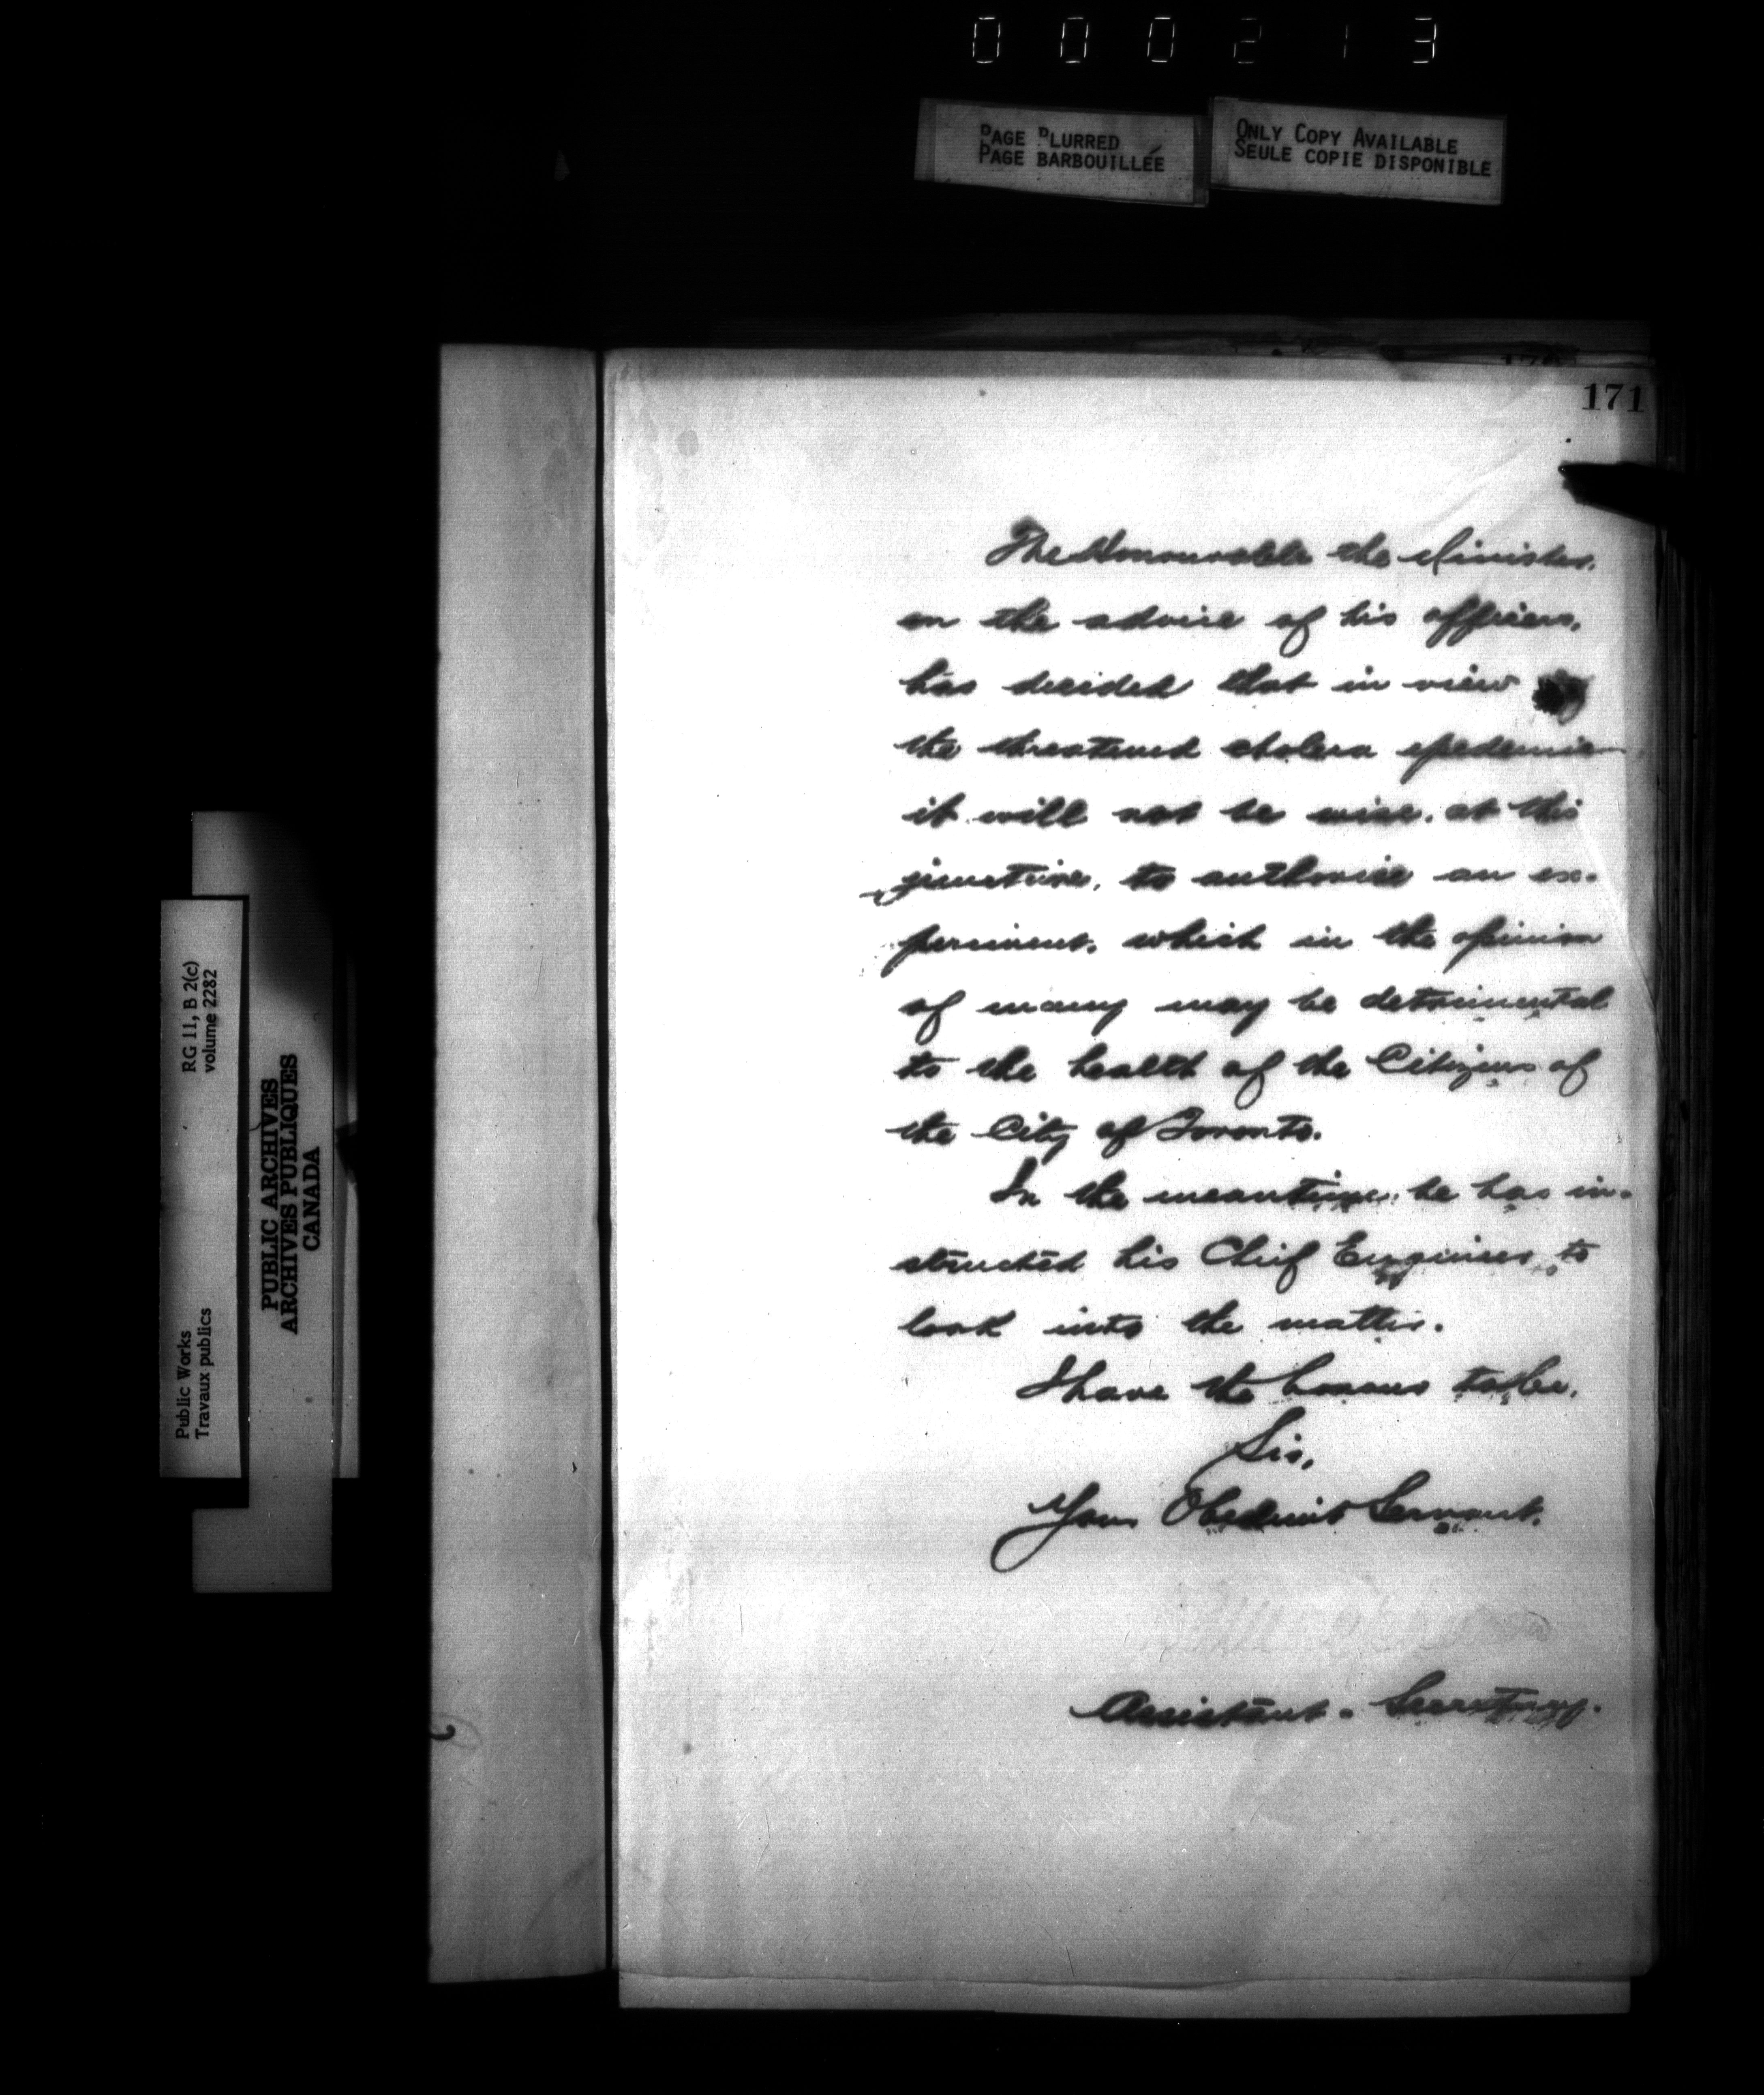 000213
PAGE BLURRED
PAGE BARBOUILLÉE
ONLY COPY AVAILABLE
SEULE COPIE DISPONIBLE
171
The Honourable the Minister,
on the advice of his officers,
has decided that in view
the threatened cholera epedemic
it will not be wise, at this
juncture, to authorise an ex-
periment, which in the opinion
of many may be detrimental
to the health of the Citizens of
the City of Toronto.
In the meantime, he has in-
structed his Chief Engineer to
look into the matter.
I have the honour to be,
Sir,
Your Obedient Servant,
Assistant-Secretary.
Public Works
Travaux publics
RG 11, B 2(c)
volume 2282
PUBLIC ARCHIVES
ARCHIVES PUBLIQUES
CANADA